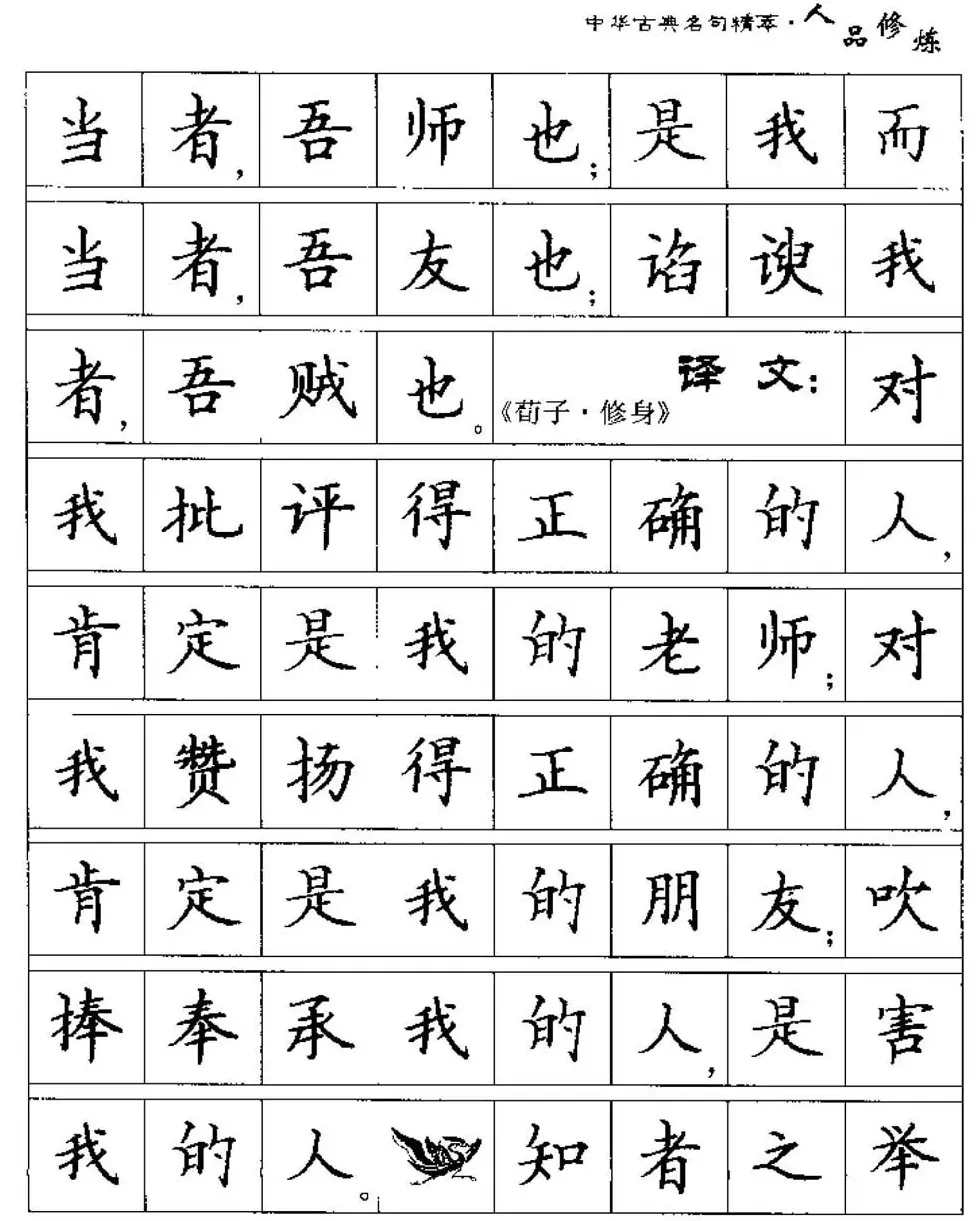 中华古典名句精萃·人品修炼
当者，吾师也；是我而
当者，吾友也；谄谀我
者，吾贼也。《荀子·修身》译文：对
我批评得正确的人，
肯定是我的老师；对
我赞扬得正确的人，
肯定是我的朋友；吹
捧奉承我的人，是害
我的人。知者之举